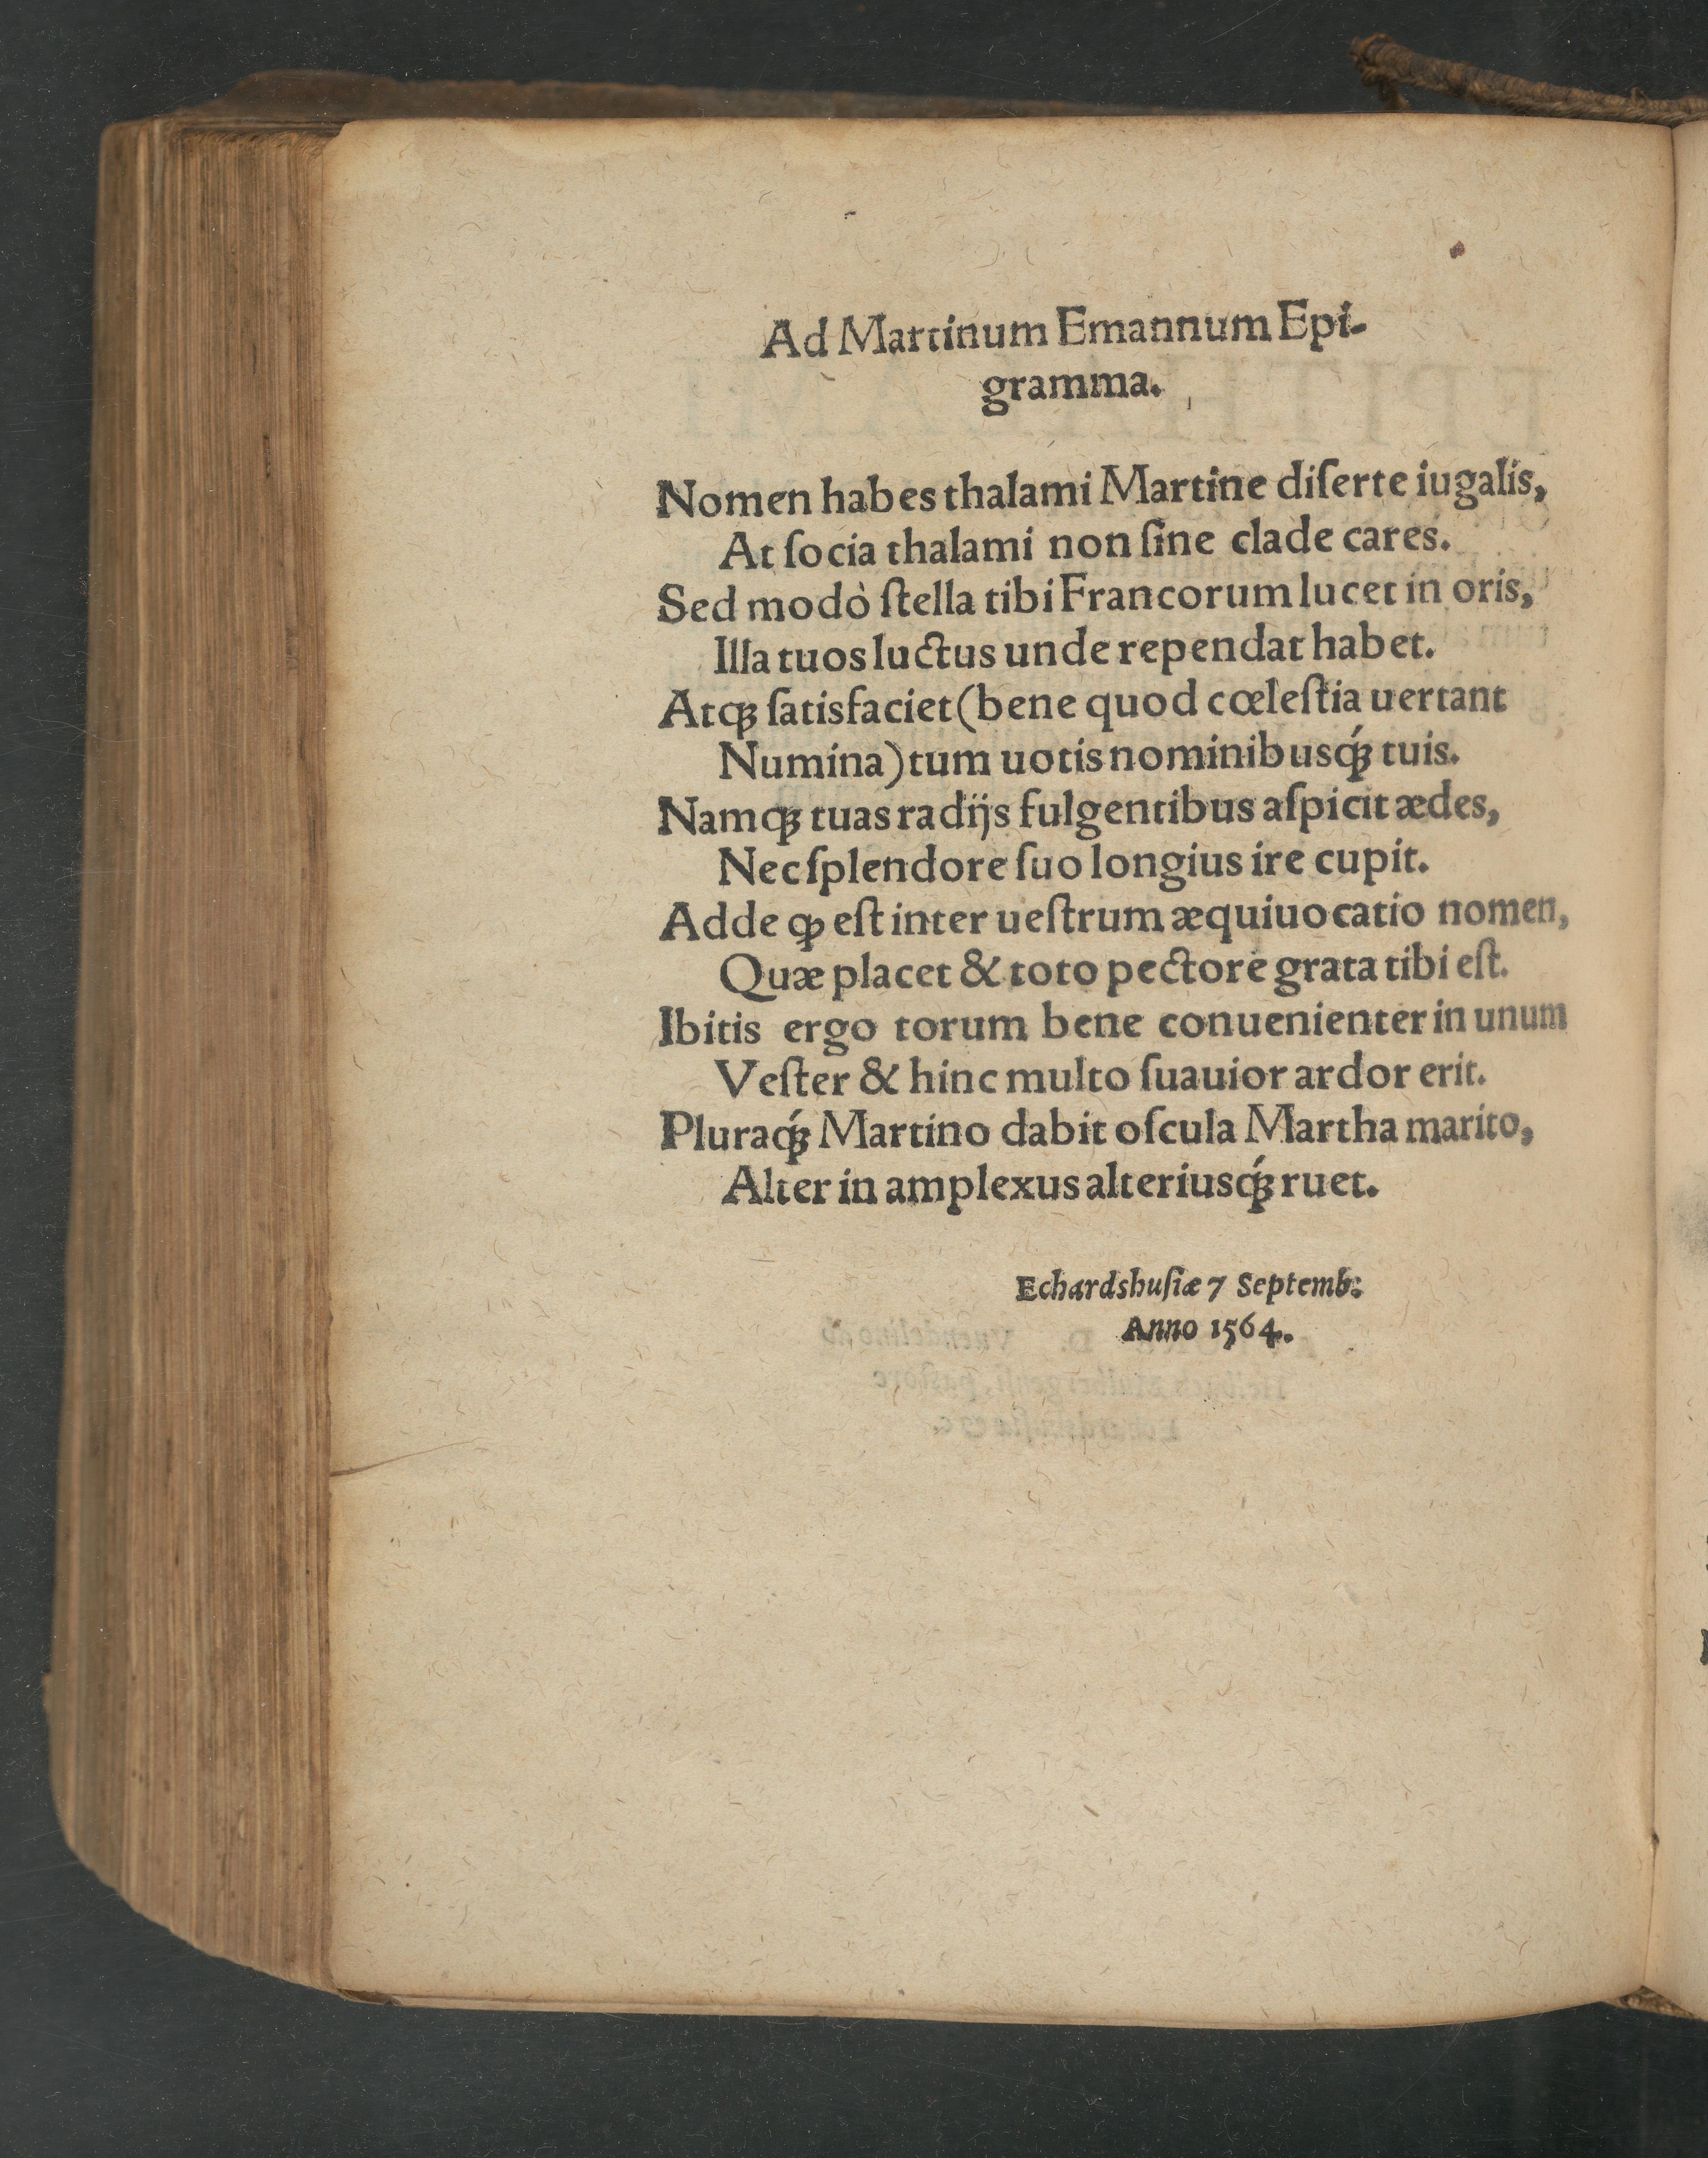 Ad Martinum Emannum Epi-
gramma.
Nomen habes thalami Martine diſerte iugalis,
At ſocia thalami non ſine clade cares.
Sed modò ſtella tibi Francorum lucet in oris,
Illa tuos luctus unde rependat habet.
Atqꝫ ſatisfaciet (bene quod cœleſtia uertant
Numina) tum uotis nominibusq́ꝫ tuis.
Namqꝫ tuas radijs fulgentibus aſpicit ædes,
Nec ſplendore ſuo longius ire cupit.
Adde ꝙ eſt inter ueſtrum æquiuocatio nomen,
Quæ placet & toto pectore grata tibi eſt.
Ibitis ergo torum bene conuenienter in unum
Veſter & hinc multo ſuauior ardor erit.
Pluraq́ꝫ Martino dabit oſcula Martha marito,
Alter in amplexus alteriusq́ꝫ ruet.
Echardshuſiæ 7 Septemb:
Anno 1564.